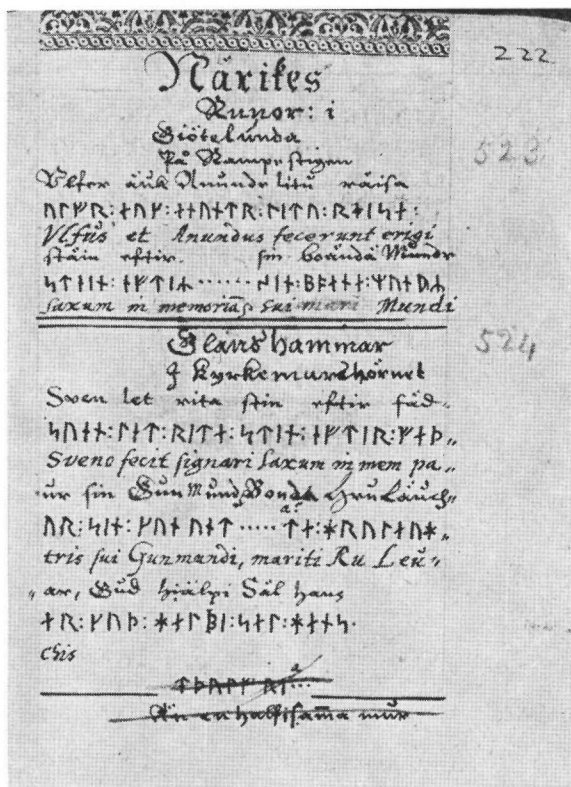 222
Närikes
Runor: i
Giötelunda
På Kampestigen
523
Ulfer auk Anunde litu räisa
ᚢᛚᚠᚱ:ᛅᚢᚠ:ᛅᚾᚢᚾᛏᚱ:ᛚᛁᛏᚢ:ᚱᛅᛁᛋᛅ:
Vlfus et Anundus fecerunt erigi
stäin eftir. sin boända Mundr
ᛋᛏᛁᛁᚾ:ᛅᚠᛏᛁᛅ
saxum in memoriā sui mari Mundi
Glanshammar
J Kyrkemurshörnet
524
Sven let rita stin eftir fäd-
ᛋᚢᛁᚾ:ᛚᛁᛏ:ᚱᛁᛏᛅ:ᛋᛏᛁᚾ:ᛁᚠᛏᛁᚱ:ᚠᛅᚦ„
Sveno fecit signari saxum in mem pa„
ur sin GunMund Bonda Hru Läuch„
ᚢᚱ:ᛋᛁᚾ:ᚴᚢᚾ
tris sui Gunmundi, mariti Ru Leu„
„ar, Gud hiälpi Säl hans
ᛅᚱ:ᚴᚢᚦ:ᚼᛁᛅᛚᛒᛁ:ᛋᛅᛚ:ᚼᛅᚾᛋ.
chis
Än en half samma mur